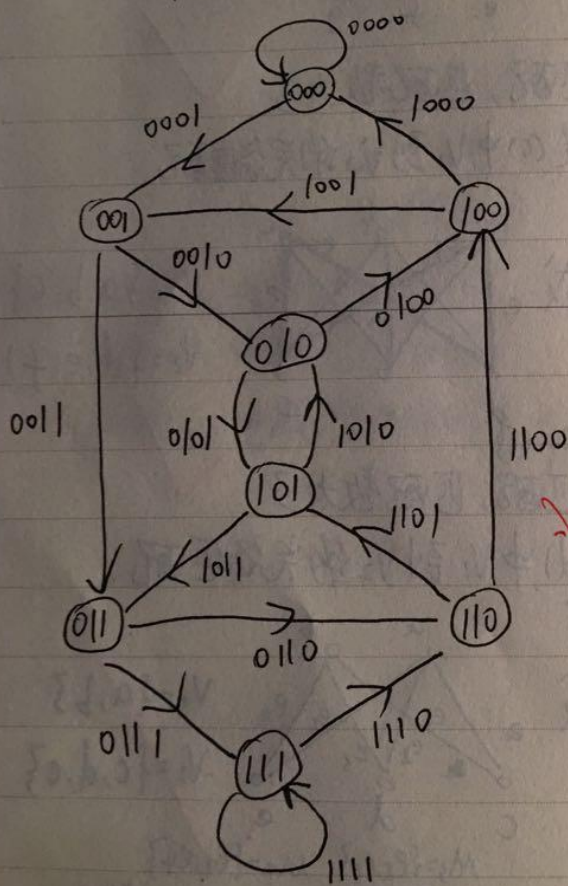 0000
000
0001
1000
001
1001
100
0010
0100
010
0011
0101
1010
1100
101
1101
1011
011
0110
110
0111
1110
111
1111